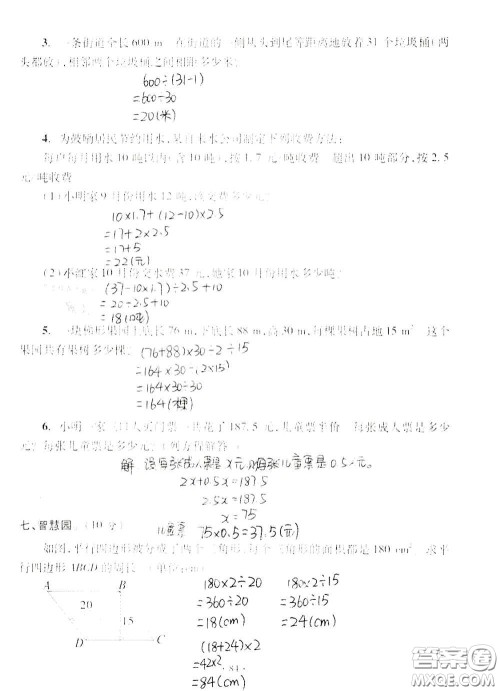 3. 一条街道全长 600 m 在街道的一侧从头到尾等距离地放着 31 个垃圾桶(两
头都放),相邻两个垃圾桶之间相距多少米?
600÷(31-1)
=600÷30
=20(米)
4. 为鼓励居民节约用水,某自来水公司制定下列收费方法:
每户每月用水 10 吨以内(含 10 吨),按 1.7 元/吨收费 超出 10 吨部分,按 2.5
元/吨收费
(1)小明家 9 月份用水 12 吨,应交费多少元?
10×1.7+(12-10)×2.5
=17+2×2.5
=17+5
=22(元)
(2)小红家 10 月份交水费 37 元,她家 10 月份用水多少吨?
(37-10×1.7)÷2.5+10
=20÷2.5+10
=18(吨)
5. 一块梯形果园上底长 76 m,下底长 88 m,高 30 m,每棵果树占地 15 m² 这个
果园共有果树多少棵?
(76+88)×30÷2÷15
=164×30÷(2×15)
=164×30÷30
=164(棵)
6. 小明一家三口人买门票一共花了 187.5 元,儿童票半价 每张成人票是多少
元?每张儿童票是多少元?(列方程解答)
解 设每张成人票是x元,则每张儿童票是0.5x元。
2x+0.5x=187.5
2.5x=187.5
x=75
儿童票 75×0.5=37.5(元)
七、智慧园。(10 分)
如图,平行四边形被分成了两个三角形,每个三角形的面积都是 180 cm² 求平
行四边形 ABCD 的周长 (单位:cm)
A B
20
15
D C
180×2÷20
=360÷20
=18(cm)
180×2÷15
=360÷15
=24(cm)
(18+24)×2
=42×2
=84(cm)
84
答案圈
MXQE.COM